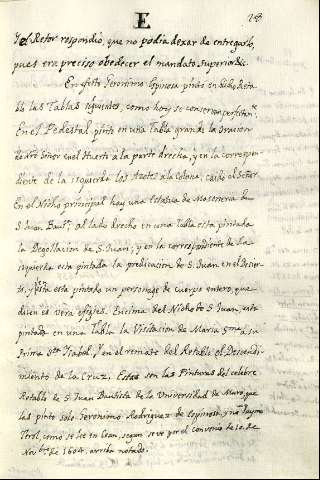 E
28
Y el Retor respondió, que no podia dexar de entregarlo,
pues era preciso obedecer el mandato Superior &c.
En efeto Geronimo Espinosa pintó en dicho Reta
blo las Tablas siguientes, como hoy se conservan perfectamte.
En el Pedestal pintó en una Tabla grande la Oracion
de Nro Señor en el Huerto a la parte drecha, y en la correspon
diente de la izquierda los Azotes a la Colana, caído el Señor.
En el Nicho principal hay una Estatua de Mazoneria de
S. Juan Bauta. al lado drecho en una Tabla esta pintada
la Degollacion de S. Juan; y en la correspondiente de la
izquierda esta pintada la predicacion de S. Juan en el Desier
to, y esta pintado un personage de cuerpo entero, que
dicen es vera efigies. Encima del Nicho de S. Juan, esta
pintada en una Tabla la Visitacion de Maria Sma. a su
Prima Sta. Isabel. Y en el remate del Retablo el Descendi
miento de la Cruz. Estas son las Pinturas del celebre
Retablo de S. Juan Bautista de la Universidad de Muro, que
las pintó solo Geronimo Rodriguez de Espinosa, y no Cayeno
Terol, como se lee en Cean, segun se ve por el convenio de 10. de
Novbre. de 1604. arriba notado.